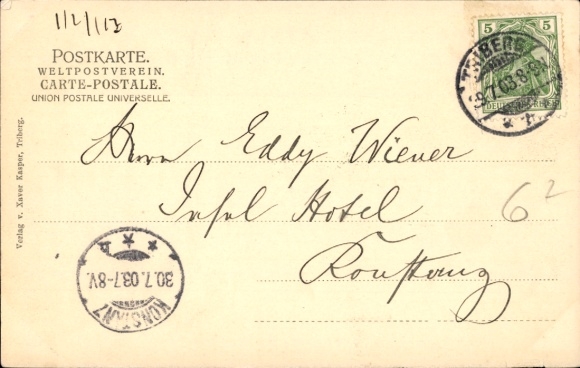 1/2/113
POSTKARTE.
WELTPOSTVEREIN.
CARTE-POSTALE.
UNION POSTALE UNIVERSELLE.
5 5
DEUTSCHES REICH
TRIBERG
29.7.03.8-9N
Herrn Eddy Wiener
Insel Hotel
Konstanz
6²
Verlag v. Xaver Kasper, Triberg.
KONSTANZ
30.7.03.7-8V.